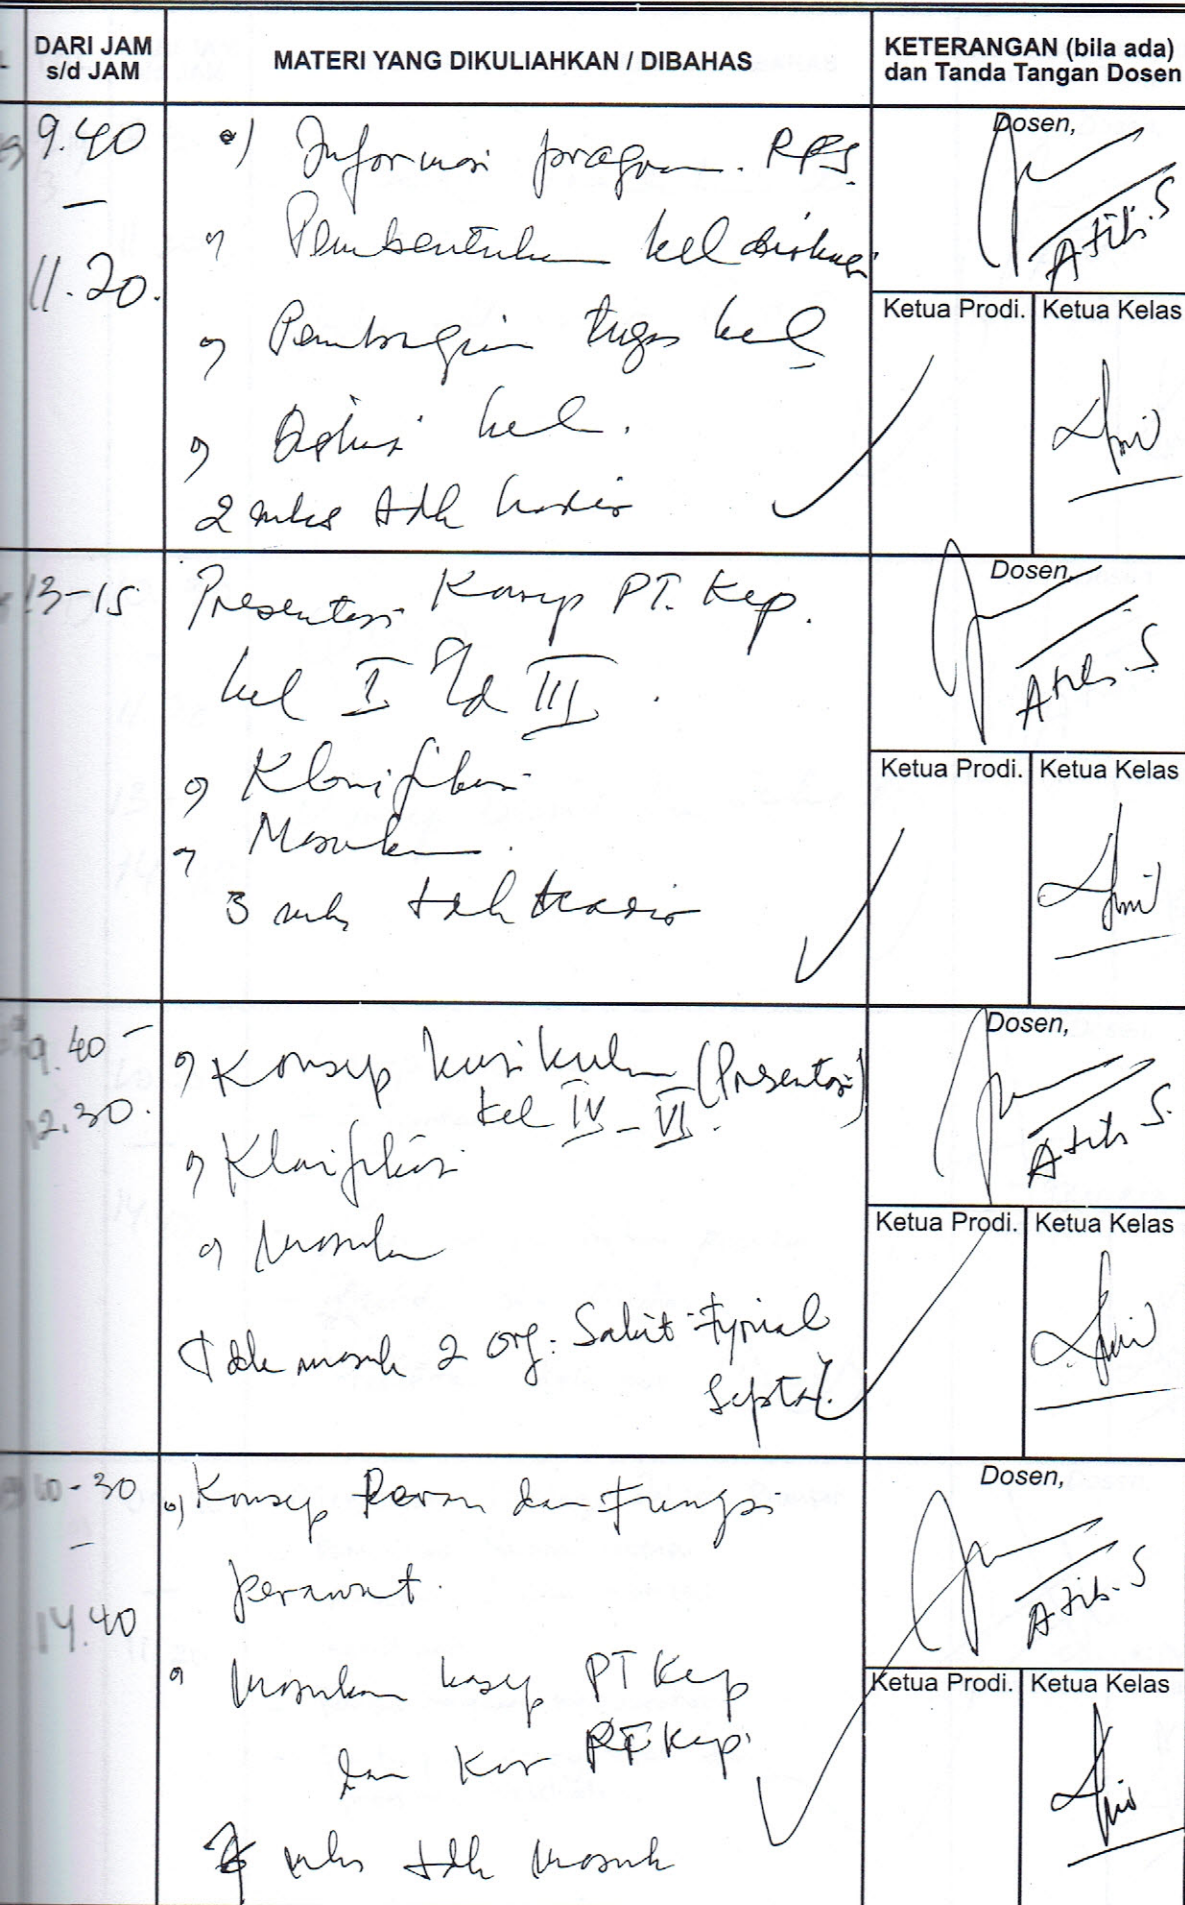 DARI JAM
s/d JAM
MATERI YANG DIKULIAHKAN / DIBAHAS
KETERANGAN (bila ada)
dan Tanda Tangan Dosen
9.40
–
11.20.
Informasi program. RPS.
Pembentukan kel diskusi
Pembagian tugas kel
Diskusi kel.
2 mhs tdk hadir
Dosen,
Atik.S
Ketua Prodi.
Ketua Kelas
13-15
Presentasi Konsep PT. Kep.
kel I s/d III.
Klarifikasi
Masukan.
3 mhs tdk hadir
Dosen,
Atik.S
Ketua Prodi.
Ketua Kelas
9.40 –
12.30.
Konsep kurikulum (Presentasi)
kel IV – VI.
Klarifikasi
Masukan
Tdk masuk 2 org: Sakit
Septa
Dosen,
Atik S.
Ketua Prodi.
Ketua Kelas
10-30
–
14.40
Konsep Peran dan Fungsi
perawat.
Masukan konsep PT Kep
dan Kur PT Kep.
mhs tdk masuk
Dosen,
Atik.S
Ketua Prodi.
Ketua Kelas